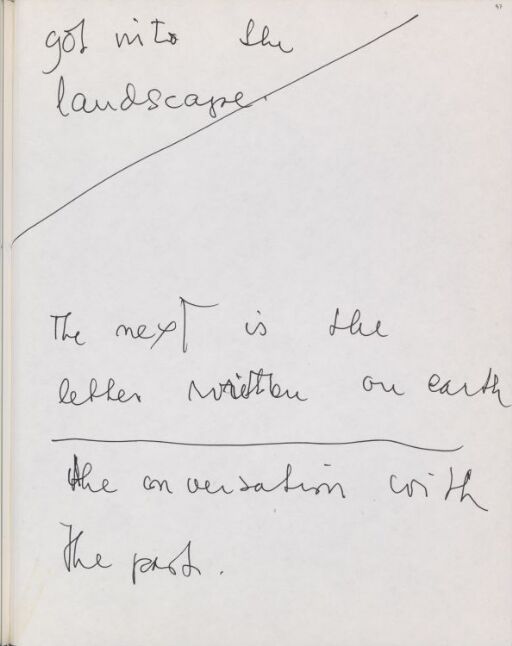 97
got into the
landscape.
The next is the
letter written on earth
the conversation with
the past.